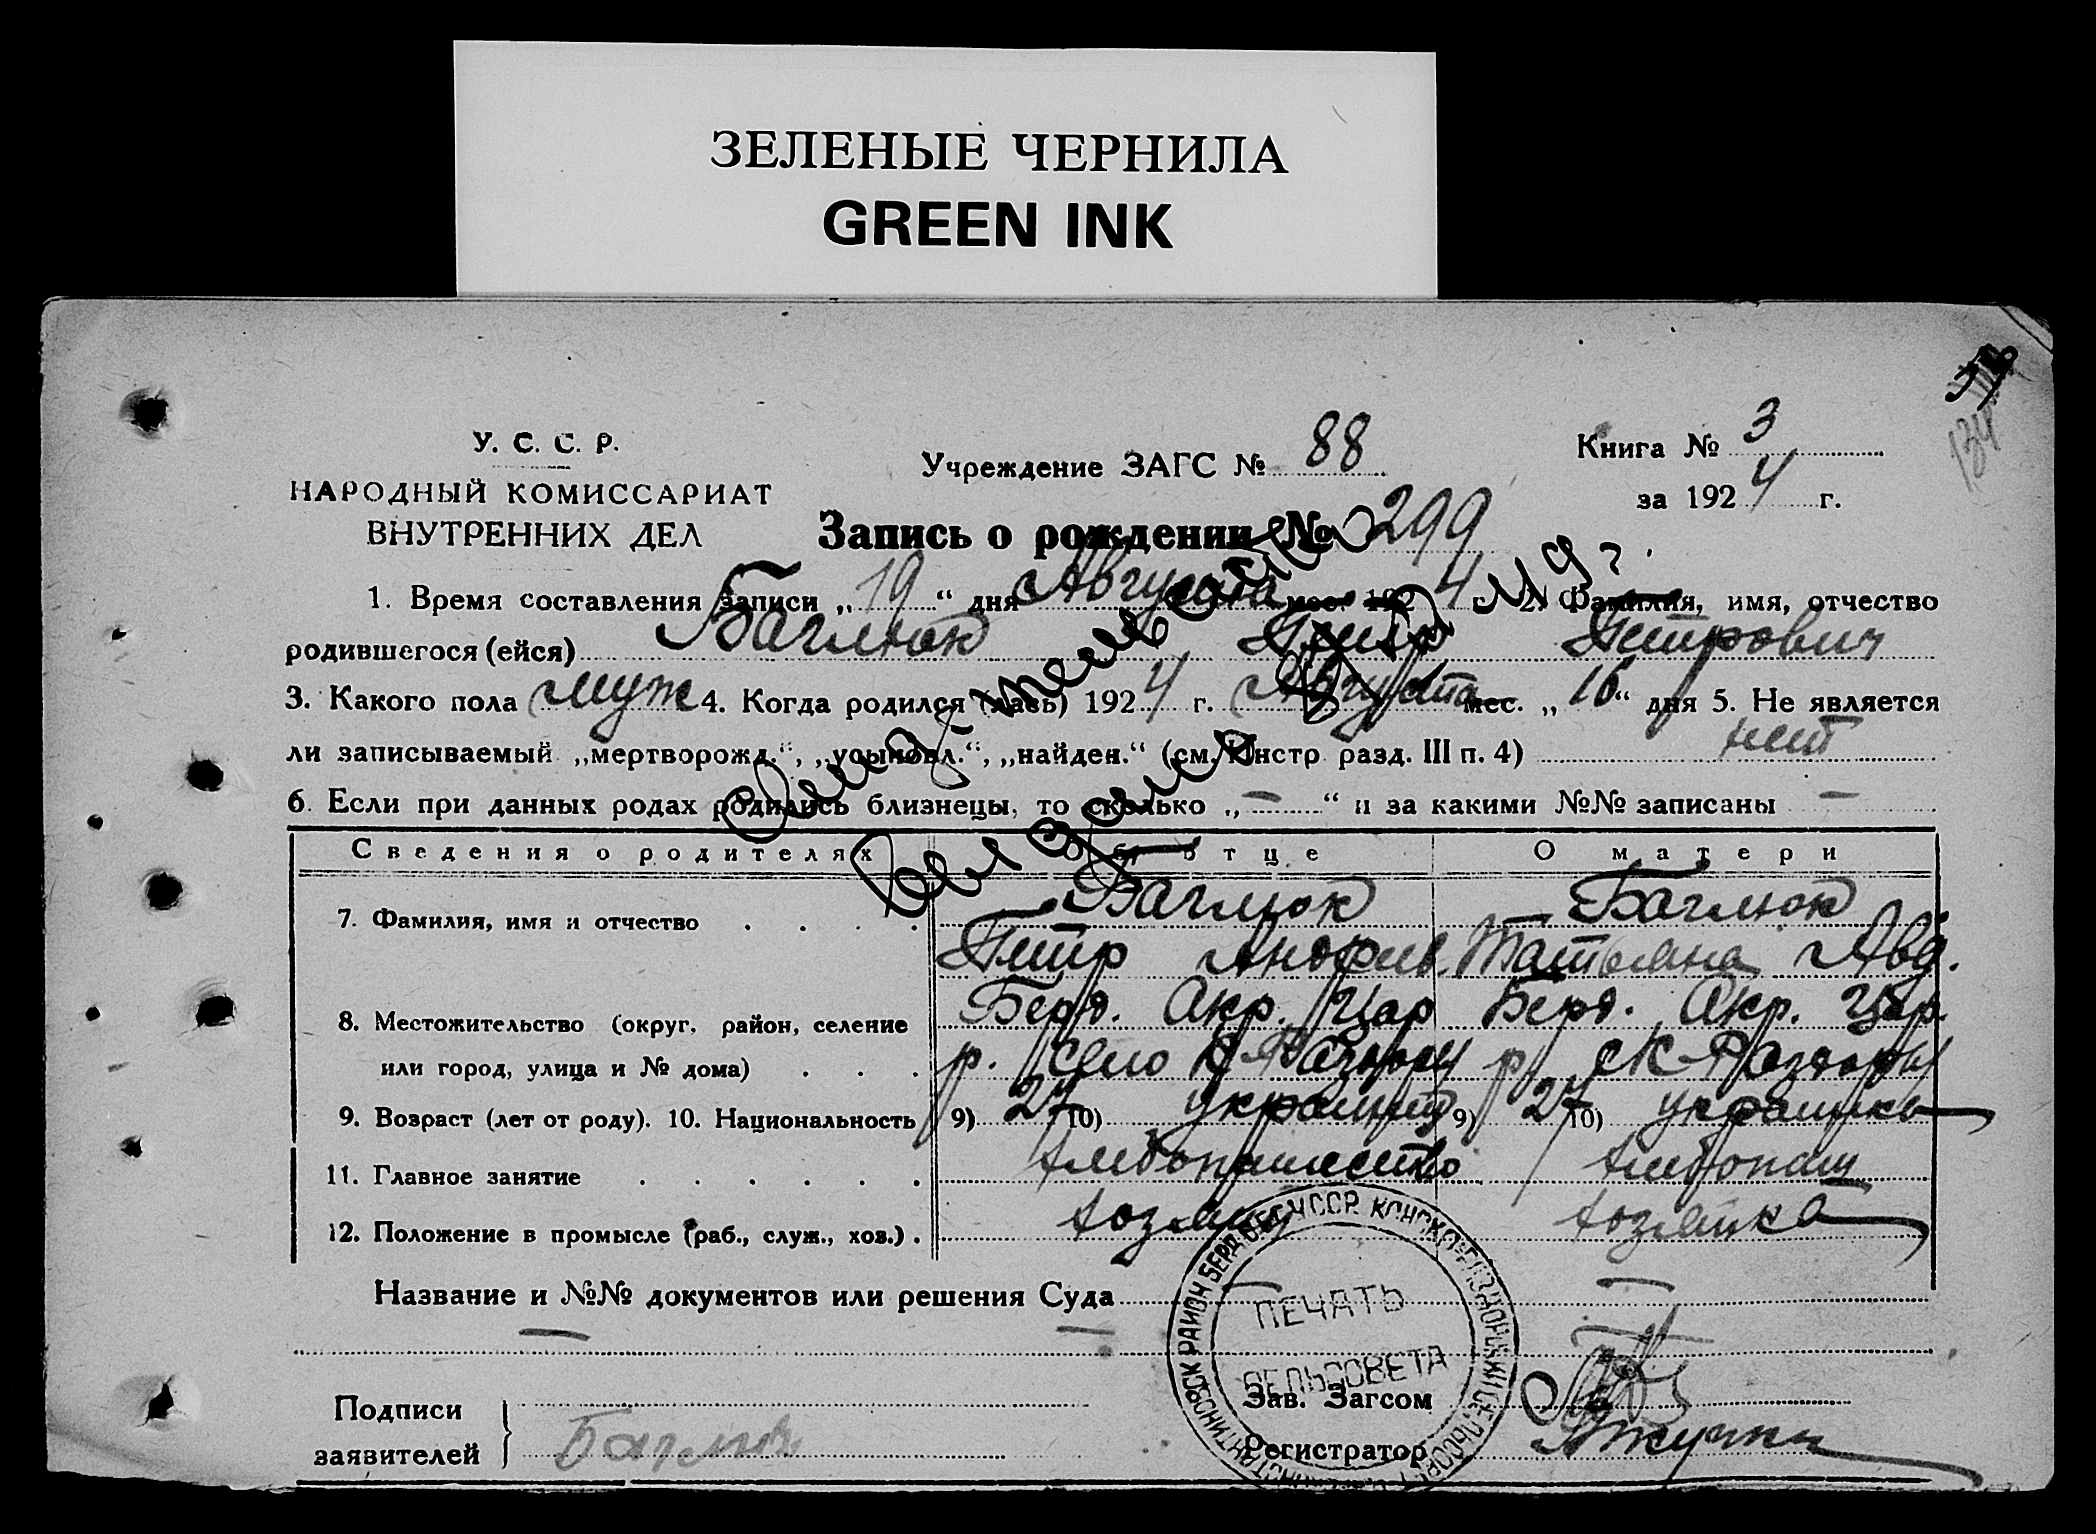 ЗЕЛЕНЫЕ ЧЕРНИЛА
GREEN INK
134
У. С. С. Р.
НАРОДНЫЙ КОМИССАРИАТ
ВНУТРЕННИХ ДЕЛ
Учреждение ЗАГС № 88
Книга № 3
за 1924 г.
Запись о рождении № 299
1. Время составления записи „19“ дня Августа мес. 1924 г. 2. Фамилия, имя, отчество
родившегося (ейся) Баглюк Петр Петрович
3. Какого пола муж 4. Когда родился (лась) 1924 г. Августа мес. „16“ дня 5. Не является
ли записываемый „мертворожд.“, „усыновл.“, „найден.“ (см. Инстр. разд. III п. 4) нет
6. Если при данных родах родились близнецы, то сколько „—“ и за какими №№ записаны —
Сведения о родителях Об отце О матери
7. Фамилия, имя и отчество Баглюк Баглюк
Петр Андреев. Татьяна Авд.
8. Местожительство (округ, район, селение Берд. Окр. Цар Берд. Окр. Цар.
или город, улица и № дома) р. Село К-Раздоры р. с К-Раздоры
9. Возраст (лет от роду). 10. Национальность 9) 27 10) украинец 9) 27 10) украинка
11. Главное занятие хлебопашество хлебопаш
12. Положение в промысле (раб., служ., хоз.) хозяин хозяйка
Название и №№ документов или решения Суда —
— —
Подписи
заявителей
Баглюк
Зав. Загсом
Регистратор
ПЕЧАТЬ
СЕЛЬСОВЕТА